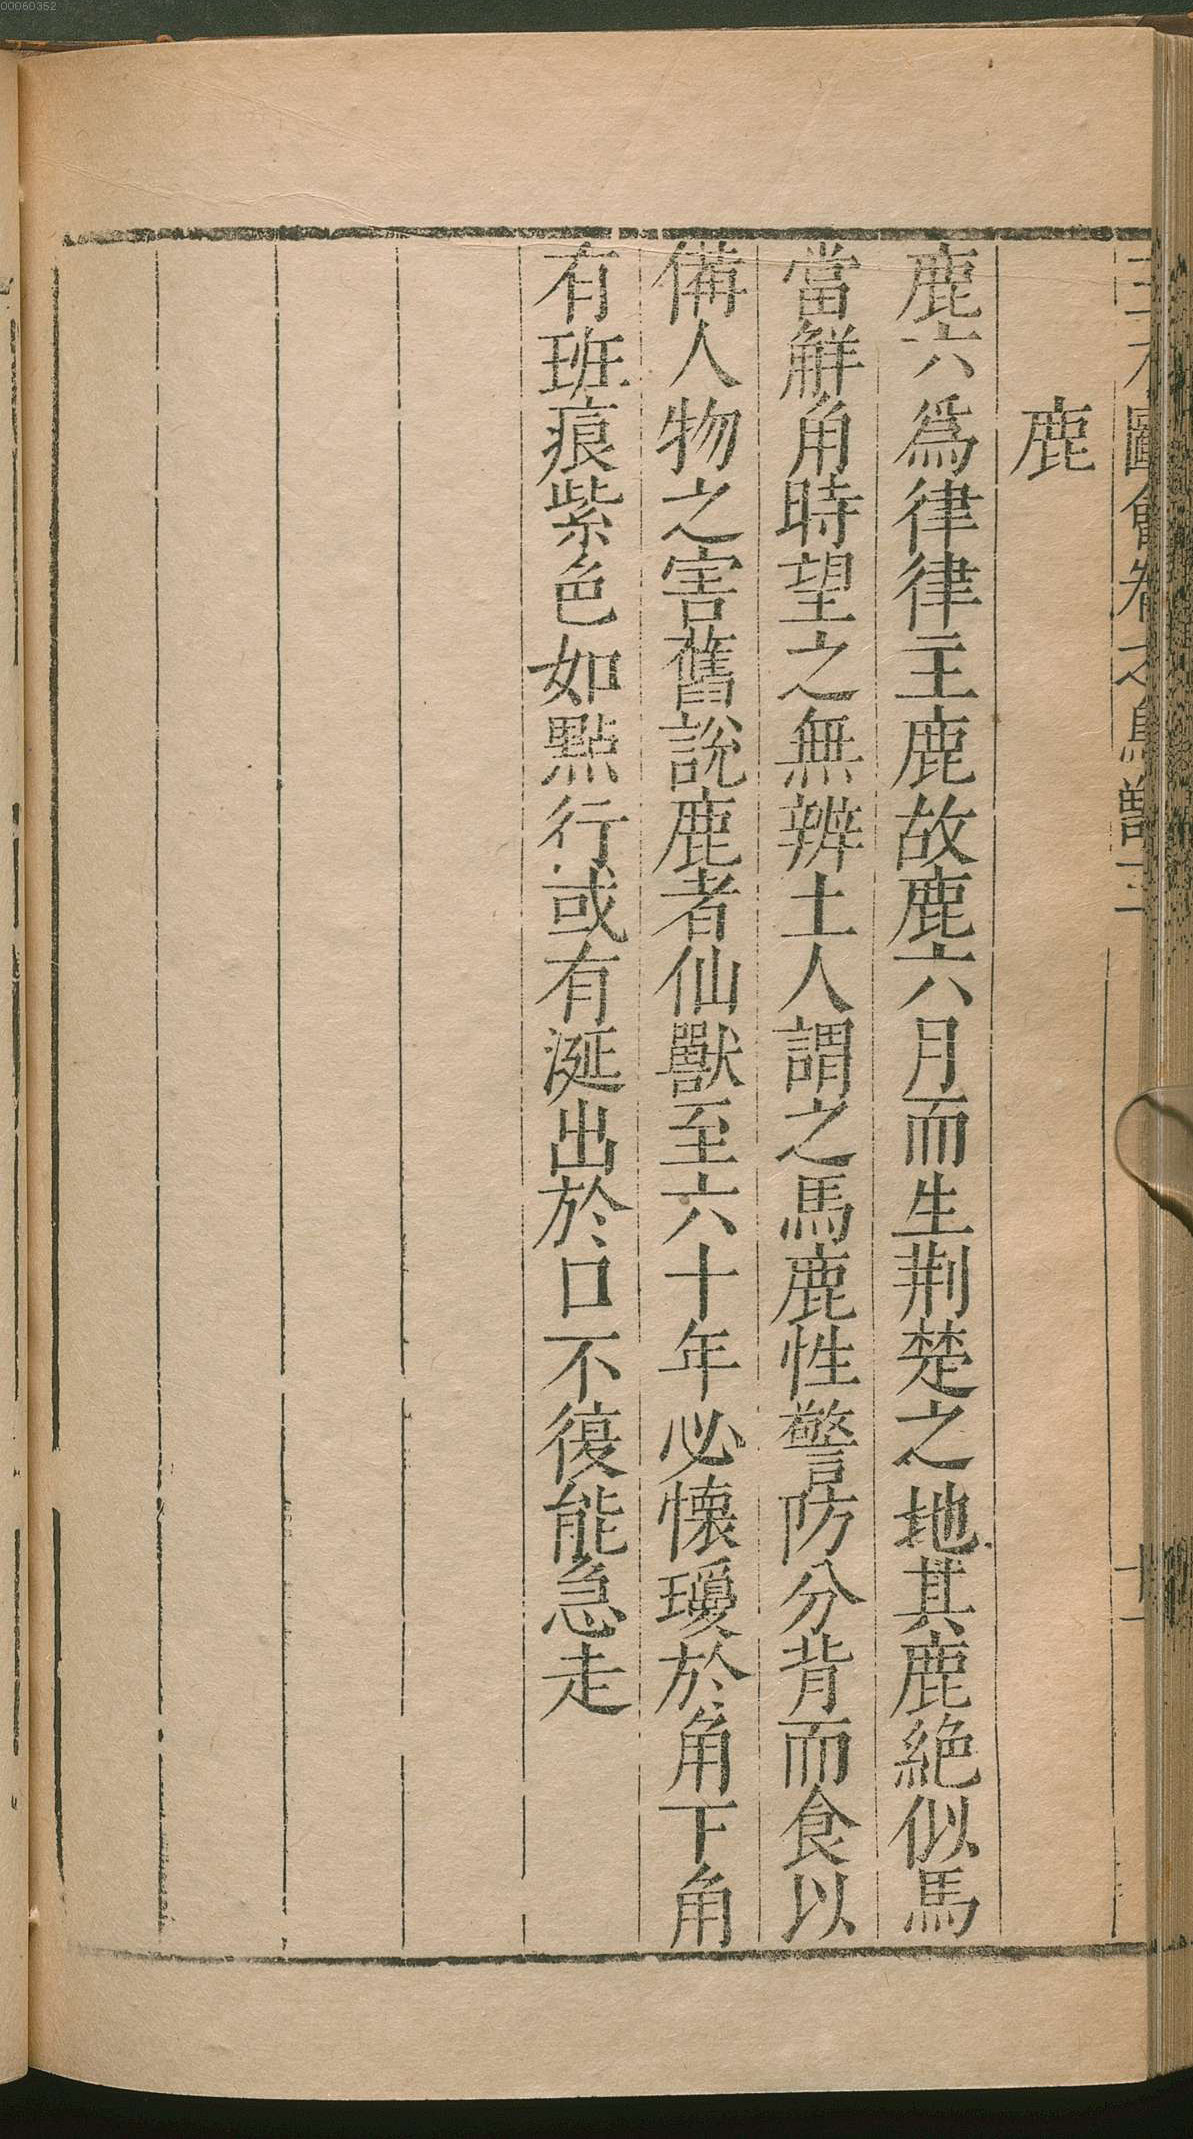 00060352
圖會卷之鳥獸三
十一
鹿
鹿六爲律律主鹿故鹿六月而生荆楚之地其鹿絶似馬
當觧角時望之無辨土人謂之馬鹿性警防分背而食以
備人物之害舊說鹿者仙獸至六十年必懐瓊於角下角
有班痕紫色如點行或有涎出於口不復能急走